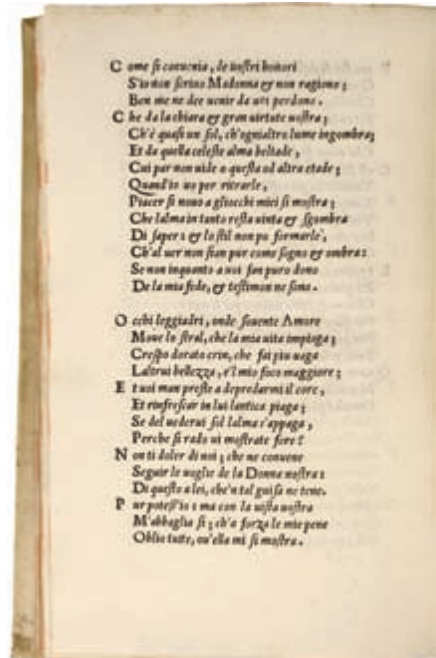 C ome si conuenia, de uostri honori
S'io non scriuo Madonna & non ragiono;
Ben me ne dee uenir da uoi perdono.
C he da la chiara & gran uirtute uostra;
Ch'è quasi un sol, ch'ogni altro lume ingombra;
Et da quella celeste alma beltade,
Cui par non uide o questa od altra etade;
Quand'io uo per ritrarle,
Piacer si nouo a gliocchi miei si mostra;
Che lalma in tanto resta uinta & sgombra
Di saper: & lo stil non po formarle,
Ch'al uer non sian pur come sogno & ombra:
Se non inquanto a uoi fan puro dono
De la mia fede, & testimon ne sono.
O cchi leggiadri, onde souente Amore
Moue lo stral, che la mia uita impiaga;
Crespo dorato crin, che fai piu uaga
L'altrui bellezza, e'l mio foco maggiore;
E t uoi man preste a depredarmi il core,
Et rinfrescar in lui lantica piaga;
Se del uederui sol lalma s'appaga,
Perche si rado ui mostrate fore?
N on ti doler di noi; che ne conuene
Seguir le uoglie de la Donna nostra:
Di questo a lei, che'n tal guisa ne tene.
P ur potess'io: ma con la uista uostra
M'abbaglia si; ch'a forza le mie pene
Oblio tutte, ou'ella mi si mostra.